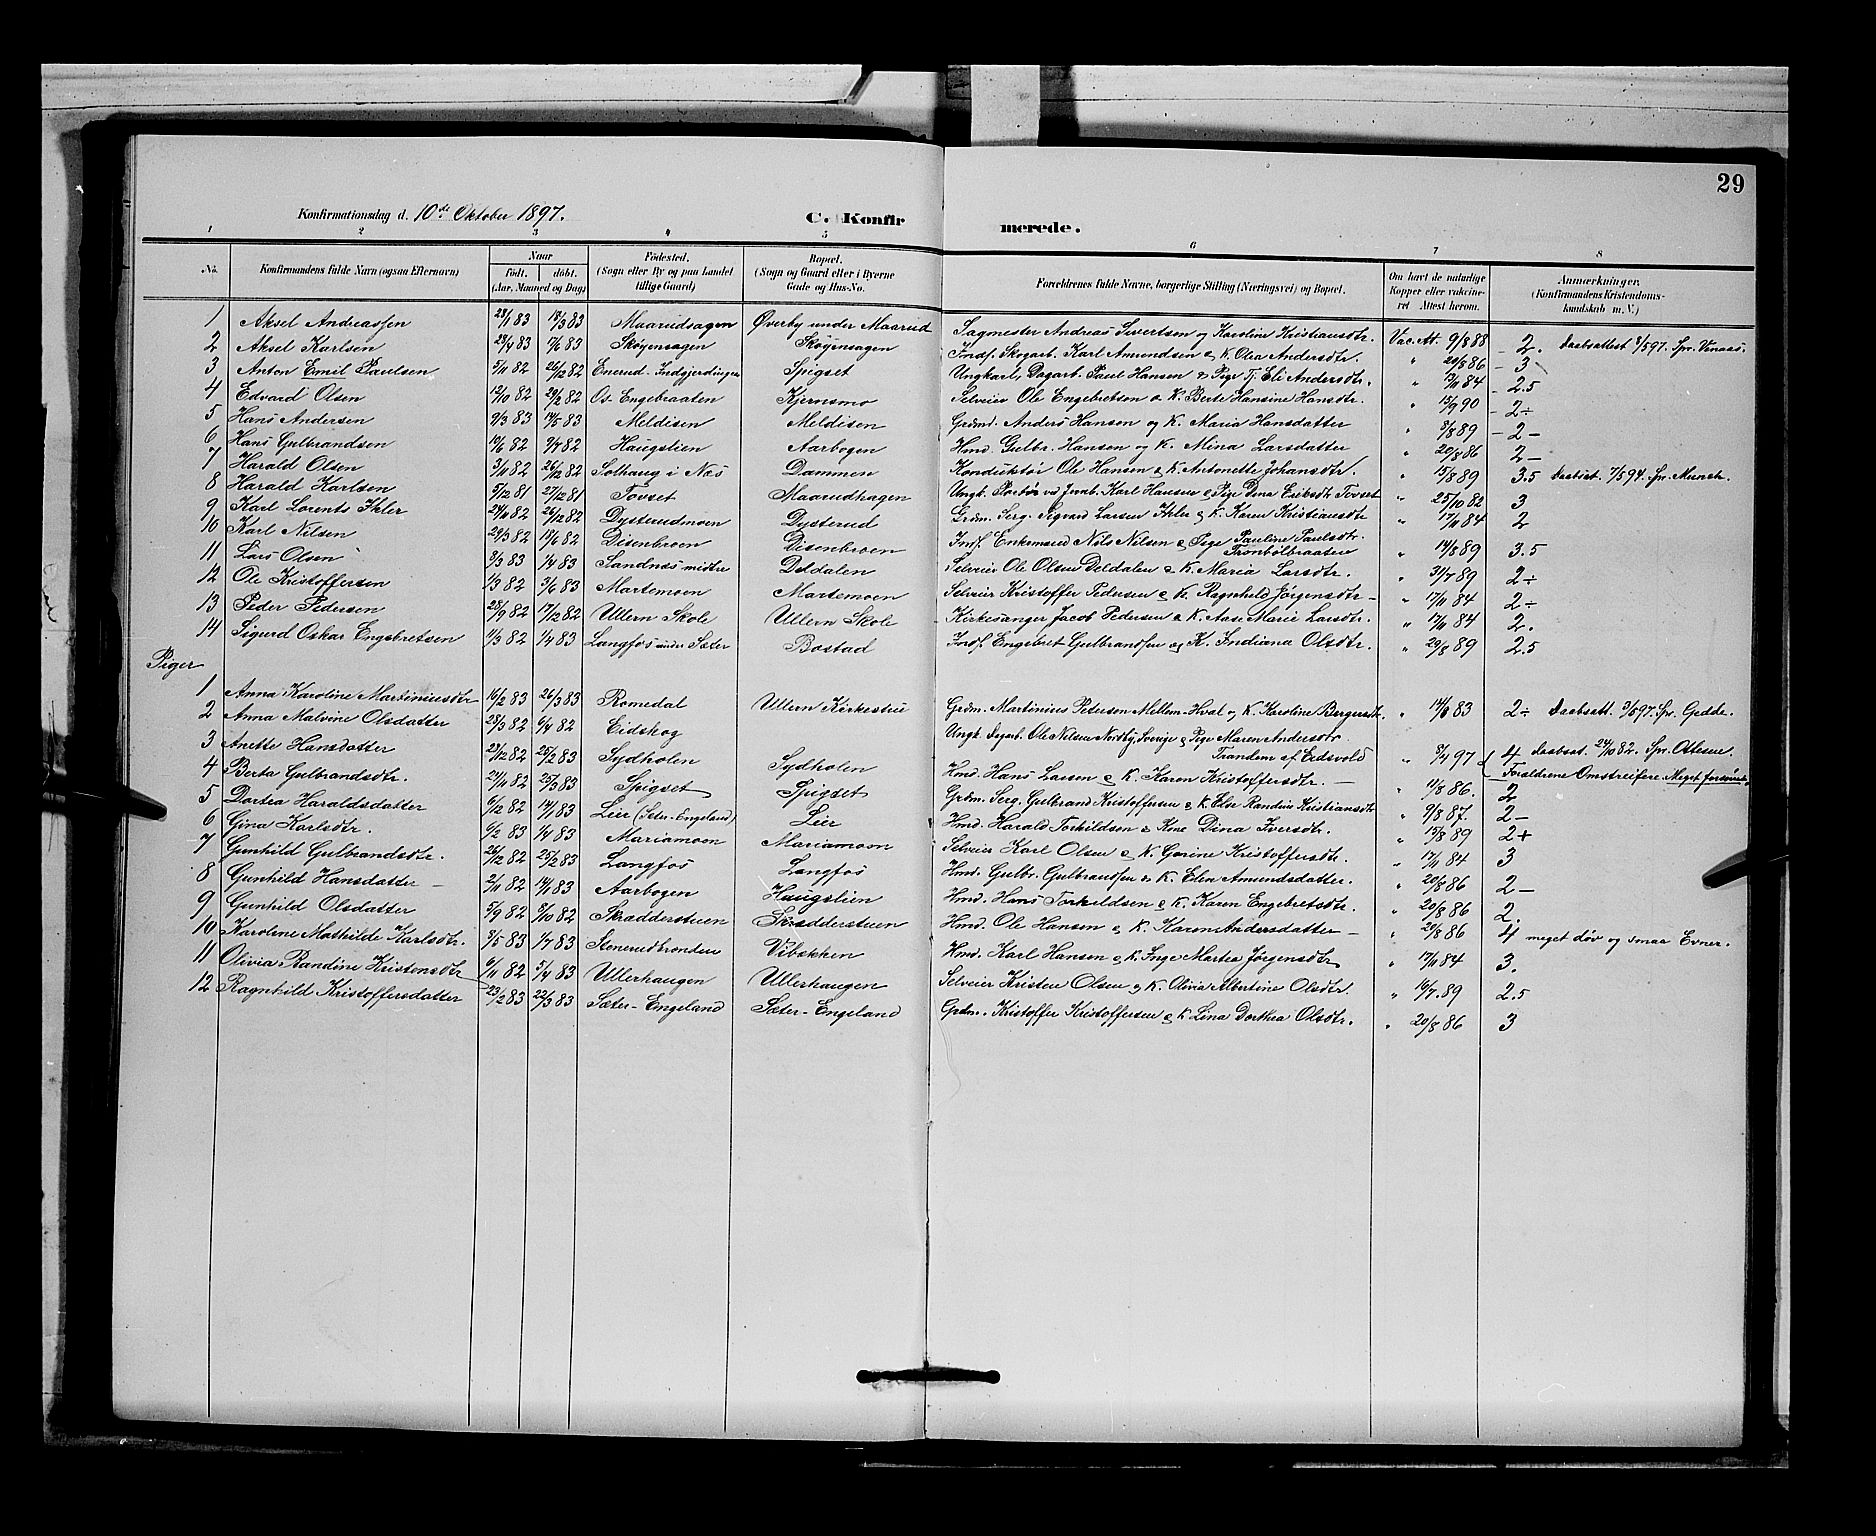 29
Konfirmationsdag d. 10de Oktober 1897.
C. Konfir merede.
1 2 3 4 5 6 7 8
No. Konfirmandens fulde Navn (ogsaa Efternavn) Naar født. døbt. (Aar, Maaned og Dag) Fødested. (Sogn eller By og paa Landet tillige Gaard) Bopæl. (Sogn og Gaard eller i Byerne Gade og Hus-No. Forældrenes fulde Navne, borgerlige Stilling (Næringsvei) og Bopæl. Om havt de naturlige Kopper eller vakcineret Attest herom. Anmærkninger. (Konfirmandens Kristendomskundskab m. V.)
1 Aksel Andreassen 28/1 83 18/3 83 Maarudsagen Øverby under Maarud Sagmester Andreas Sivertsen og Karoline Kristiansdtr. Vac. Att. 9/8 88 2. Daabsattest 597. Spr. Vinaas.
2 Aksel Karlsen 29/4 83 17/6 83 Skøyensagen Skøyensagen Inds. Skogarb. Karl Amundsen & K. Olea Andersdtr. " 20/8 86 3
3 Anton Emil Paulsen 5/11 82 26/12 82 Enerud-Indgjerdingen Spigset Ungkarl, Dagarb. Paul Hansen & Pige Tj. Eli Andersdtr. " 84 2.5
4 Edvard Olsen 12/10 82 82 Os-Engebraaten Kjernsmo Selveier Ole Engebretsen & K. Berte Hansine Hansdtr. " 15/9 90 2÷
5 Hans Andersen 9/3 83 14/5 83 Meldisen Meldisen Grdmd. Anders Hansen og K. Maria Hansdatter " 8/8 89 2-
6 Hans Gulbrandsen 19/6 82 82 Haugslien Aarbogen Hmd. Gulbr. Hansen og K. Mina Larsdatter " 20/8 86 2-
7 Harald Olsen 3/11 82 26/12 82 Solhaug i Næs Dammen Konduktør Ole Hansen & K. Antonette Johansdtr. " 15/8 89 3.5 Daabsat. 7/5 94. Spr. Munch.
8 Harald Karlsen 5/12 81 27/12 81 Tovset Maarudhagen Ungk. Portør vd Jernb. Karl Hansen & Pige Dina Eriksdtr. Tovset " 25/10 82 3
9 Karl Lorents Ihler 24/11 82 26/12 82 Dysterudmoen Dysterud Grdm. Serg. Sigvard Larsen Ihler & K. Karen Kristiansdtr " 17/11 84 2
10 Karl Nilsen 29/3 82 19/6 82 Disenbroen Disenbroen Inds. Enkemand Nils Nilsen & Pige Pauline Paulsdtr. Trønbølbraaten " 14/8 89 3.5
11 Lars Olsen 8/3 83 1/4 83 Sandnæs midtre Deldalen Selveier Ole Olsen Deldalen & K. Maria Larsdtr. " 31/7 89 2÷
12 Ole Kristoffersen 1/3 82 3/6 83 Martemoen Martemoen Selveier Kristoffer Pedersen & K. Ragnhild Jørgensdtr - " 17/11 84 2÷
13 Peder Pedersen 28/9 82 17/12 82 Ullern Skole Ullern Skole Kirkesanger Jacob Pedersen & K. Aase Marie Larsdtr. " 17/11 84 2.
14 Sigurd Oskar Engebretsen 11/3 82 1/4 83 Langfos under Sæter Bostad Inds. Engebret Gulbrandsen og K. Indiana Olsdtr. " 29/8 89 2.5
Piger
1 Anna Karoline Martiniusdtr 16/2 83 26/3 83 Romedal Ullern Kirkestue Grdm. Martinius Peterson Mellem-Hval og K. Karoline Bergersdtr. " 83 2÷ Daabsatt. 597. Spr. Gedde.
2 Anna Malvine Olsdatter 28/3 82 6/4 82 Eidskog Ungk. Dagarb. Ole Nilsen Nordby, Sverige & Pige Maren Andersdtr. Trandem af Eidsvold " 8/4 97 4 daabsat. 24/10 82. Spr. Ottesen Forældrene Omstreifere. Meget forsømt.
3 Anette Hansdatter 23/12 82 25/2 83 Sydholen Sydholen Hmd. Hans Larsen & K. Karen Kristoffersdtr. - " 11/8 86. 2
4 Berta Gulbrandsdtr. 24/11 82 25/3 83 Spigset Spigset Grdm. Serg. Gulbrand Kristoffersen & K. Else Randine Kristiansdtr " 9/8 87. 2-
5 Dortea Haraldsdatter 6/12 82 14/1 83 Lier (Seter-Engeland) Lier Hmd. Harald Torkildsen & Kone Dina Iversdtr. " 15/8 89 2+
6 Gina Karlsdtr. 6/2 83 1/4 83 Mariamoen Mariamoen Selveier Karl Olsen & K. Gorine Kristoffersdtr. " 17/11 84 3
7 Gunhild Gulbrandsdtr. 26/12 82 25/2 83 Langfos Langfos Hmd. Gulbr. Gulbrandsen & K. Elen Amundsdatter. " 20/8 86 2-
8 Gunhild Hansdatter - 2/11 82 14/1 83 Aarbogen Haugslien Hmd. Hans Torkildsen & K. Karen Engebretsdtr. " 20/8 86 2.
9 Gunhild Olsdatter 5/9 82 8/10 82 Skradderstuen Skradderstuen Hmd. Ole Hansen & K. Karen Andersdatter - " 20/8 86 4 meget døv og smaa Evner.
10 Karoline Mathilde Karlsdtr. 3/5 83 1/7 83 Stenerudbronden Vibækken Hmd. Karl Hansen & K. Inge Martea Jørgensdtr " 17/11 84 3.
11 Olivia Randine Kristensdtr 6/11 82 5/4 83 Ullerhaugen Ullerhaugen Selveier Kristen Olsen & K. Olivia Albertine Olsdtr. " 16/7. 89 2.5
12 Ragnhild Kristoffersdatter 23/2 83 22/3 83 Sæter-Engeland Sæter-Engeland Grdm. Kristoffer Kristoffersen & K. Lina Dorthea Olsdtr. " 20/8 86 3